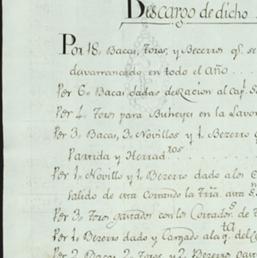 Descargo de dicho
Por 18, Bacas, Toros, y Becerros q.e se
desvarrancado en todo el Año
Por 6, Bacas dadas de Racion al Cap.
Por 4, Toros para Bueyes en la Lavor
Por 3, Bacas, 3, Novillos y 1, Becerro q
Partida y Herrad.tos
Por 1, Novillo y 1, Becerro dado a los
valido de otra Corrando la
Por 3, Toros gastados con los Corradores de
Por 1, Becerro dado y Cargado a la q.ta del
Por 2, Bacas, 2, Toros, y 2, Becerros